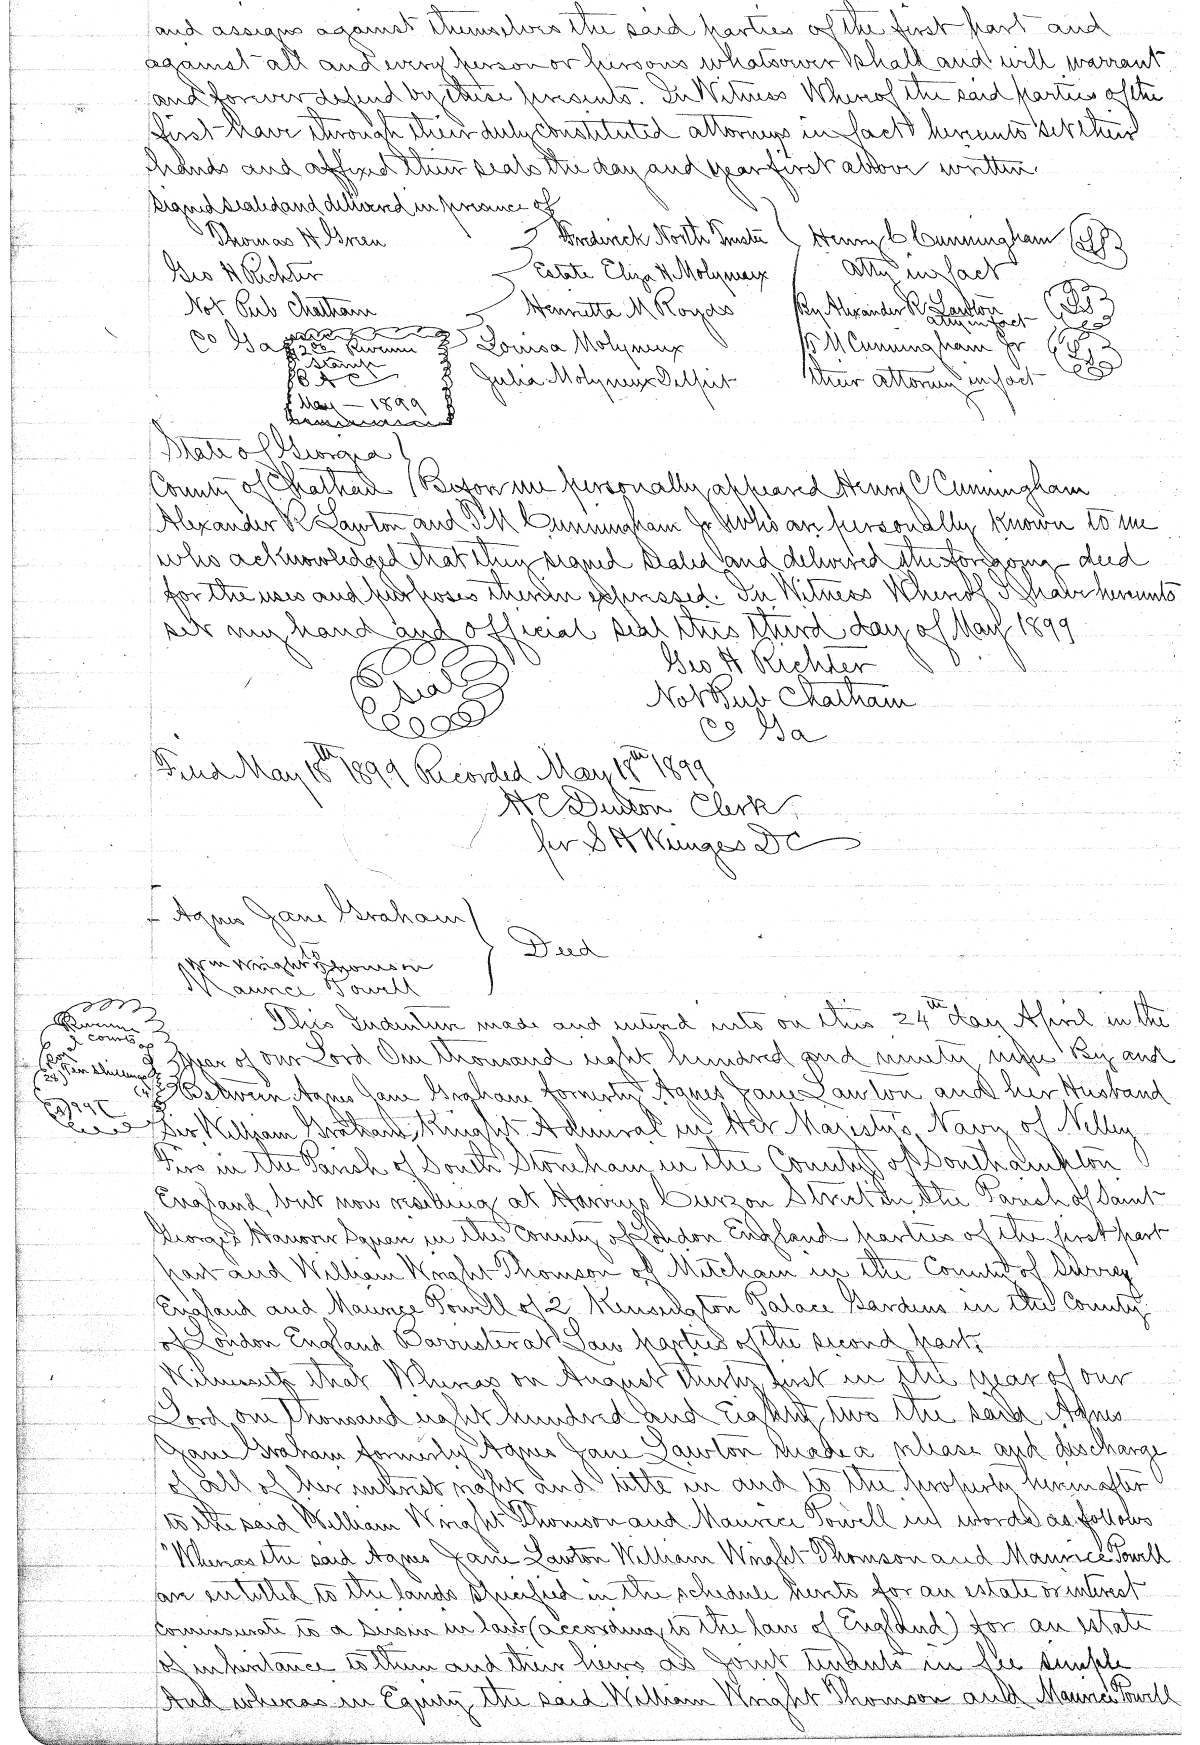 and assigns against themselves the said parties of the first part and
against all and every person or persons whatsoever shall and will warrant
and forever defend by these presents. In Witness Whereof the said parties of the
first have through their duly constituted attorneys in fact hereunto set their
hands and affixed their seals the day and year first above written.
Signed sealed and delivered in presence of
Thomas H Green
Geo H Richter
Not Pub Chatham
Co Ga
$ Revenue
Stamp
May — 1899
Frederick North Trustee
Estate Eliza H Molyneux
Henrietta M Royds
Louisa Molyneux
Julia Molyneux Delpit
Henry C Cunningham
Atty in fact
By Alexander R Lawton
atty in fact
T M Cunningham Jr
their attorney in fact
State of Georgia
County of Chatham Before me personally appeared Henry C Cunningham
Alexander R Lawton and T M Cunningham Jr who are personally known to me
who acknowledged that they signed sealed and delivered the foregoing deed
for the uses and purposes therein expressed. In Witness Whereof I have hereunto
set my hand and official seal this third day of May 1899
Seal
Geo H Richter
Not Pub Chatham
Co Ga
Filed May 18th 1899 Recorded May 18th 1899
H C Clerk
per S H DC
Agnes Jane Graham
to
Wm Wright Thomson
Maurice Powell
Deed
Revenue
This Indenture made and entered into on this 24th day April in the
Year of our Lord One thousand eight hundred and ninety nine By and
Between Agnes Jane Graham formerly Agnes Jane Lawton and her Husband
Sir William Graham Knight Admiral in Her Majestys Navy of Netley
Firs in the Parish of South Stoneham in the County of Southampton
England, but now residing at Curzon Street in the Parish of Saint
Georges Hanover Square in the County of London England parties of the first part
part and William Wright Thomson of Mitcham in the County of Surrey
England and Maurice Powell of 2 Kensington Palace Gardens in the County
of London England Barrister at Law parties of the second part.
Witnesseth that Whereas on August thirty first in the year of our
Lord one thousand eight hundred and Eighty two the said Agnes
Jane Graham formerly Agnes Jane Lawton made a release and discharge
of all of her interest right and title in and to the property hereinafter
to the said William Wright Thomson and Maurice Powell in words as follows
"Whereas the said Agnes Jane Lawton William Wright Thomson and Maurice Powell
are entitled to the lands specified in the schedule hereto for an estate or interest
commensurate to a seisin in law (according to the law of England) for an estate
of inheritance to them and their heirs as Joint tenants in fee simple
And whereas in Equity the said William Wright Thomson and Maurice Powell